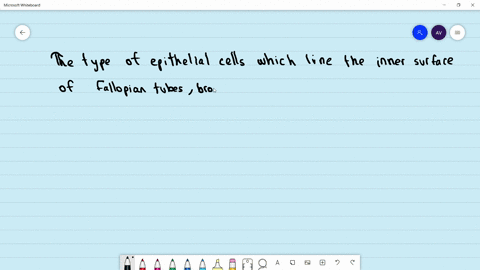 Microsoft Whiteboard
AV
The type of epithelial cells which line the inner surface
of Fallopian tubes, bro